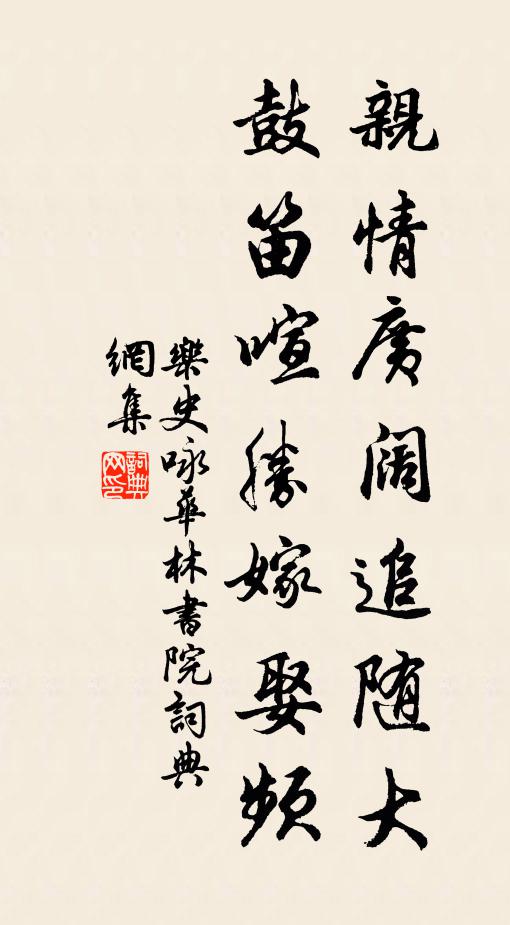 親情廣闊追随大
鼓笛喧勝嫁娶頻
樂史咏華林書院詞典
網集
詞典
网印